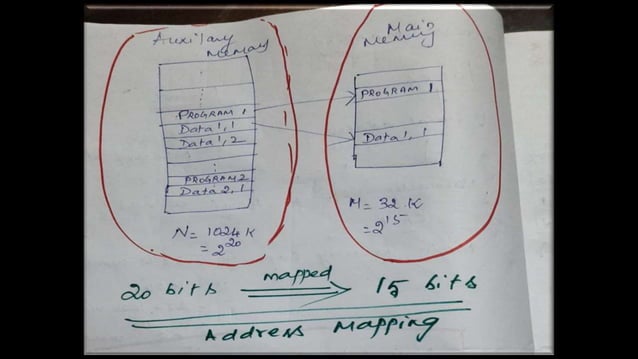 Auxilary Memory
PROGRAM 1
Data 1, 1
Data 1, 2
PROGRAM 2
Data 2, 1
N = 1024 K
= 2^20
Main Memory
PROGRAM 1
Data 1, 1
M = 32 K
= 2^15
20 bits mapped 15 bits
Address Mapping